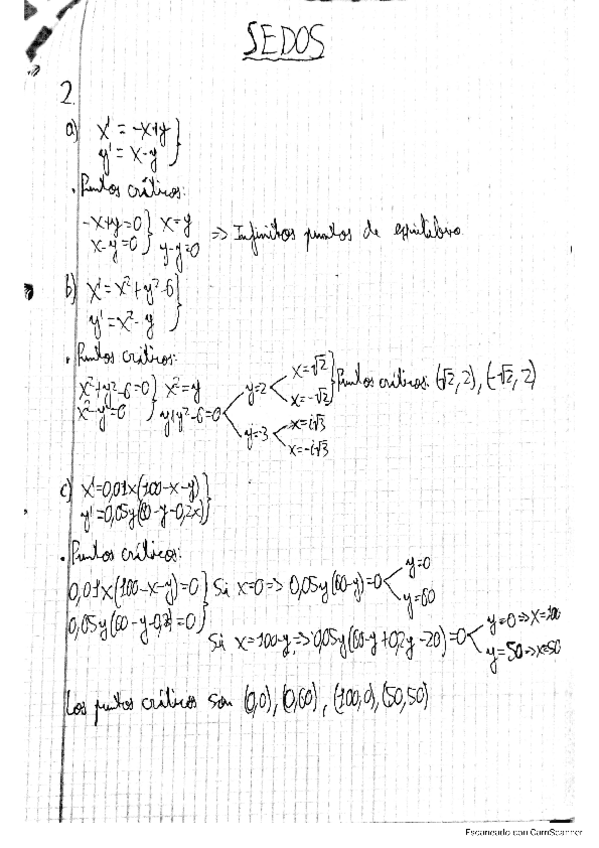 SEDOS
2.
a) x' = -x+y }
y' = x-y
· Puntos críticos:
-x+y=0 } x=y
x-y=0 } y-y=0 => Infinitos puntos de equilibrio
b) x' = x²+y²-6 }
y' = x²-y
· Puntos críticos:
x²+y²-6=0 } x²=y
x²-y=0 } y+y²-6=0 < y=2 < x=√2 x=-√2 } Puntos críticos: (√2,2), (-√2,2)
y=-3 < x=i√3 x=-i√3
c) x'=0,01x(100-x-y) }
y'=0,05y(60-y-0,2x)
· Puntos críticos:
0,01x(100-x-y)=0 } Si x=0 => 0,05y(60-y)=0 < y=0 y=60
0,05y(60-y-0,2x)=0 }
Si x=100-y => 0,05y(60-y+0,2y-20)=0 < y=0 => x=100 y=50 => x=50
Los puntos críticos son (0,0), (0,60), (100,0), (50,50)
Escaneado con CamScanner